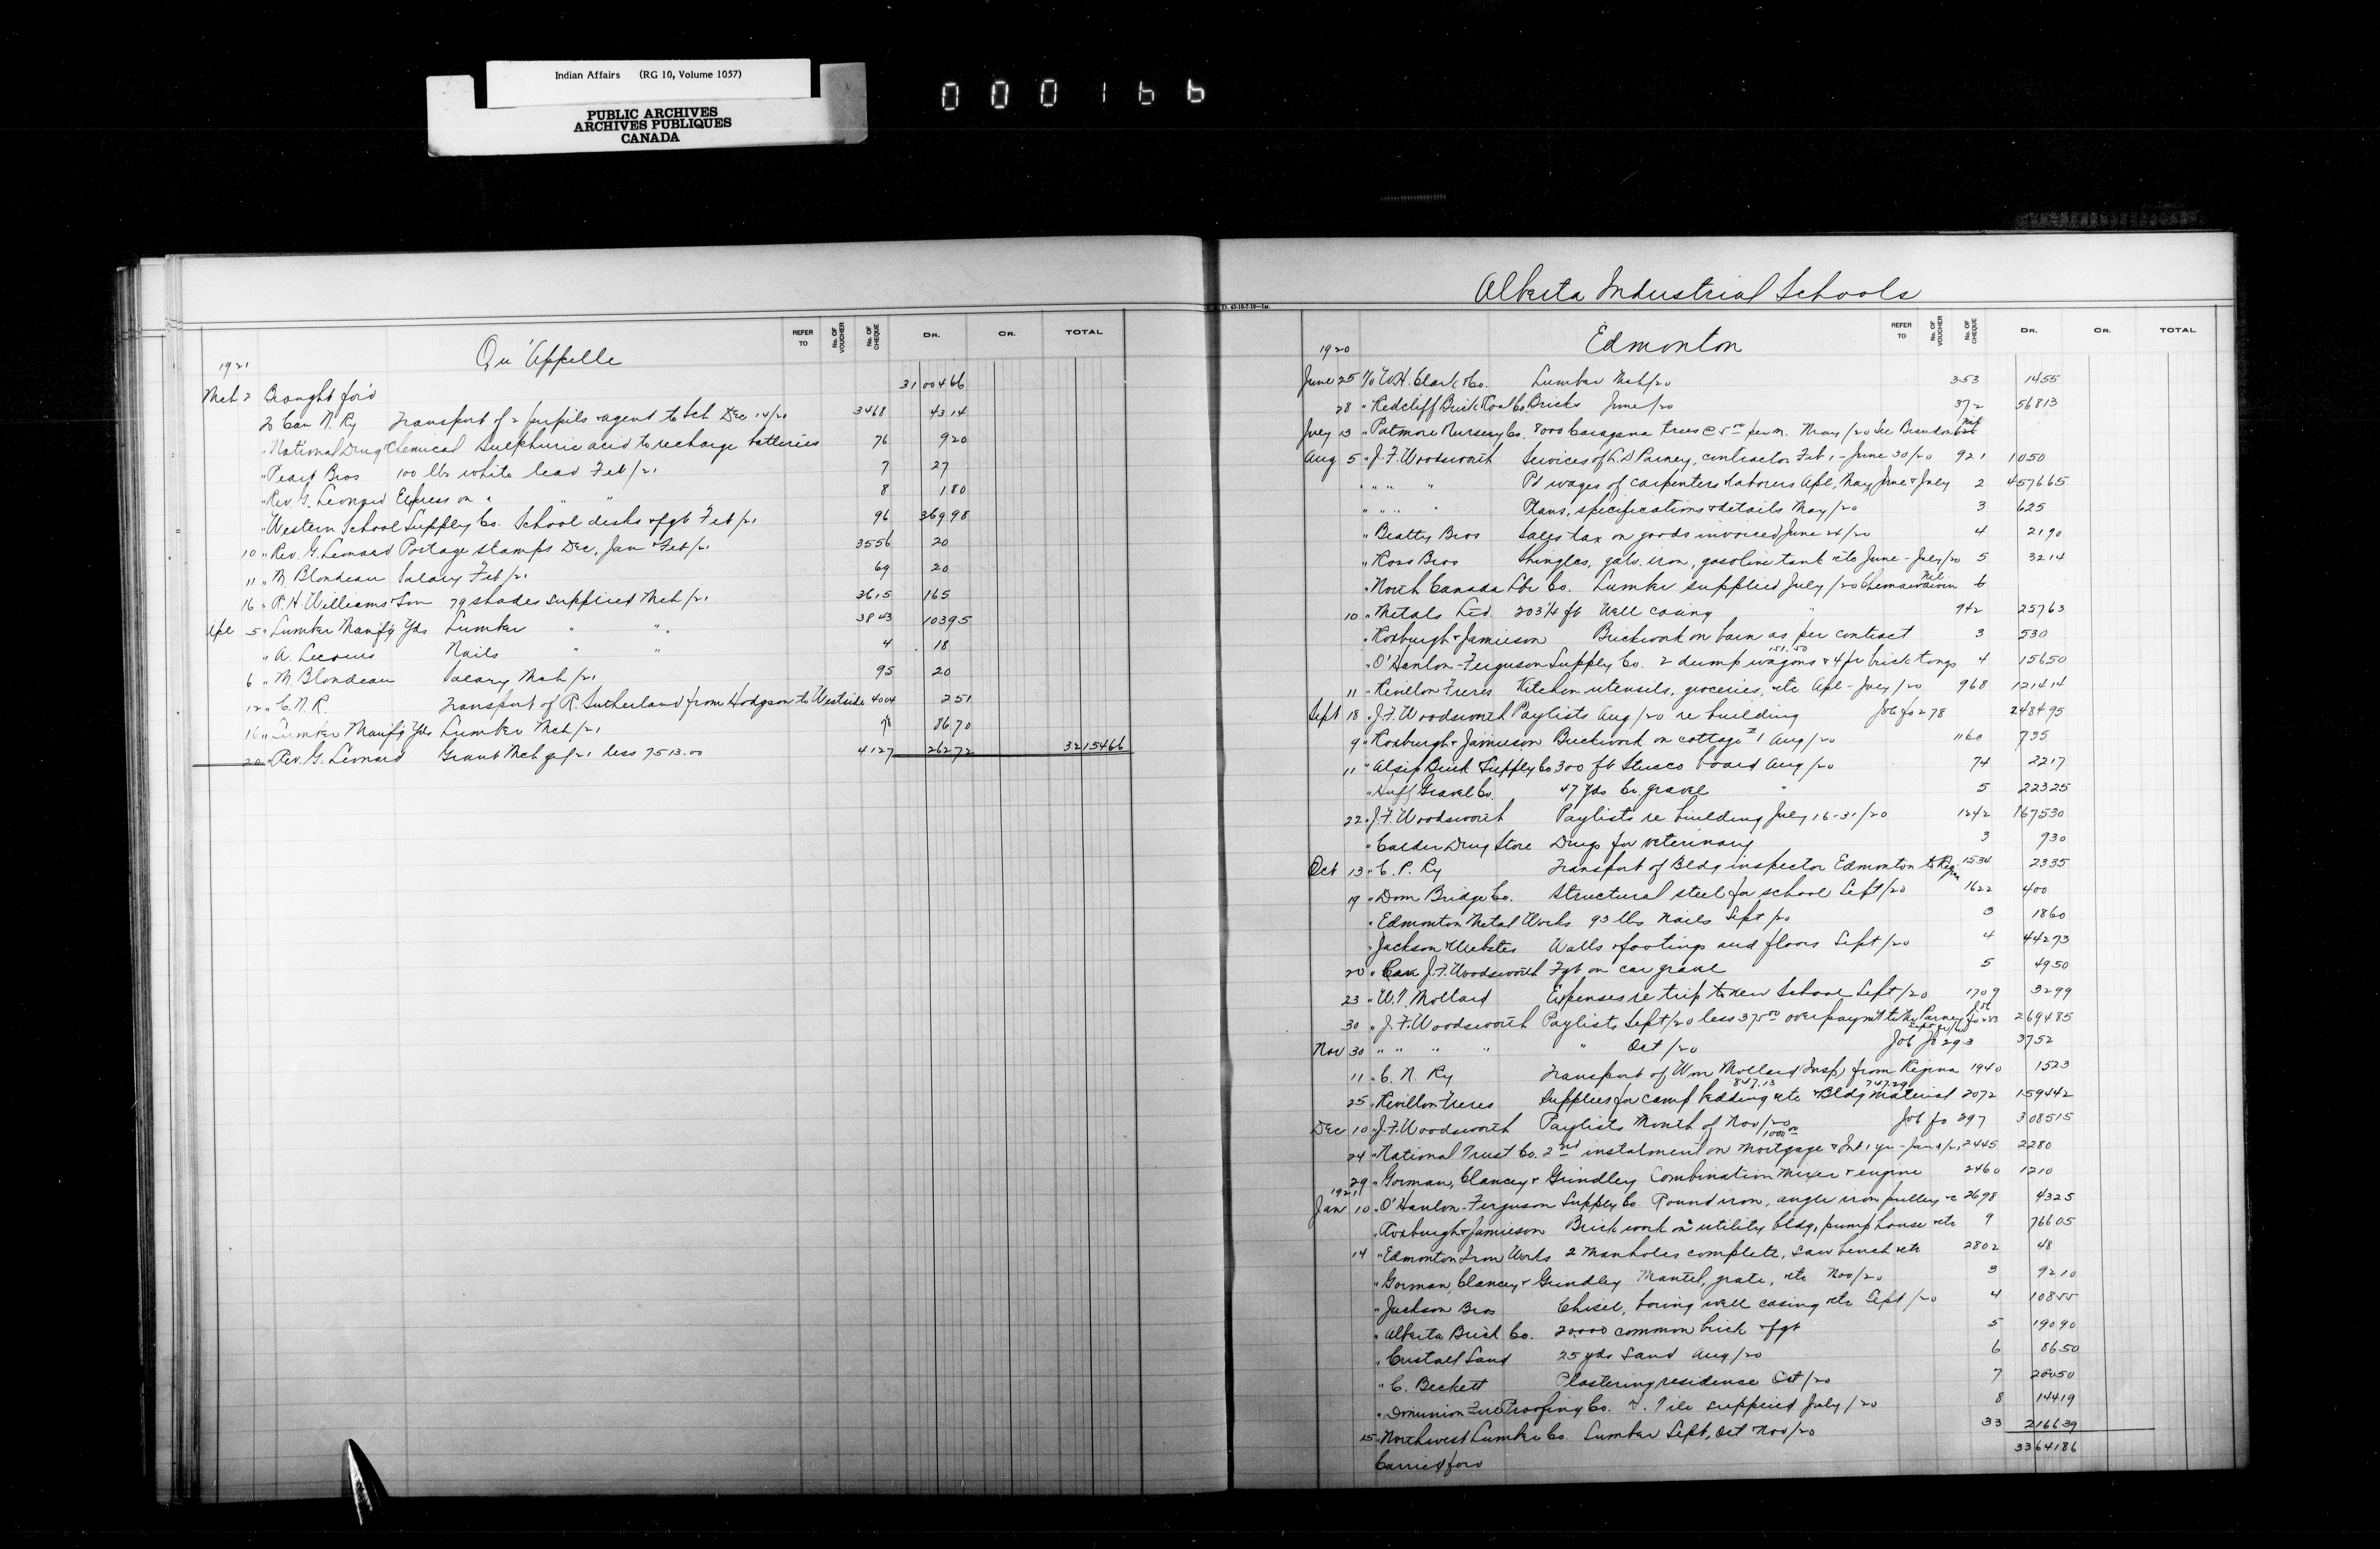 Indian Affairs (RG 10, Volume 1057)
PUBLIC ARCHIVES
ARCHIVES PUBLIQUES
CANADA
000166
Qu'Appelle
REFER TO No. OF VOUCHER No. OF CHEQUE DR. CR. TOTAL
1921
Mch 2 Brought for'd 31 004 66
2 Can N. Ry Transport of 2 pupils & agent to Sch Dec 14/20 3468 43 14
" National Drug & Chemical Sulphuric acid to recharge batteries 76 9 20
" Peart Bros 100 lbs white lead Feb/21 7 27
" Rev. G. Leonard Express on " " " 8 1 80
" Western School Supply Co. School desks & fgt Feb/21 96 369 98
10 " Rev. G. Leonard Postage stamps Dec, Jan & Feb/21 3556 20
11 " M Blondeau Salary Feb/21 69 20
16 " R. H. Williams & Son 79 shades supplied Mch/21 3615 165
Apl 5 " Lumber Manf'g Yds Lumber " " 3843 103 95
" A. Lecours Nails " " 4 18
6 " M. Blondeau Salary Mch/21 95 20
12 " C. N. R. Transport of R. Sutherland from Hodgson to Westside 4004 2 51
16 " Lumber Manf'g Yds Lumber Mch/21 86 70
20 " Rev. G. Leonard Grant Mch qr/21 less 7513.00 4127 262 72 32154 66
Alberta Industrial Schools
Edmonton
REFER TO No. OF VOUCHER No. OF CHEQUE DR. CR. TOTAL
1920
June 25 W. H. Clark & Co. Lumber Mch/20 353 14 55
28 " Redcliff Brick & Coal Co. Bricks June/20 372 568 13
July 13 " Patmore Nursery Co. 8000 Caragana trees @ 5.00 per M. May/20 See Brandon
Aug 5 " J. F. Woodsworth Services of A. D. Parney, contractor Feb 1 - June 30/20 921 1050
" " " " Pd wages of carpenters & laborers Apl, May, June & July 2 4576 65
" " " " Plans, specifications & details May/20 3 625
" Beatty Bros Sales tax on goods invoiced June 24/20 4 21 90
" Ross Bros Shingles, galv. iron, gasoline tank etc June - July/20 5 32 14
" North Canada Lbr Co. Lumber supplied July/20 Chemawawin 6
10 " Metals Ltd. 203¼ ft Well casing " 942 257 63
" Roxburgh & Jamieson Brickwork on barn as per contract 3 530
" O'Hanlon-Ferguson Supply Co. 2 dump wagons 151.50 & 4 pr brick tongs 4 156 50
11 " Revillon Freres Kitchen utensils, groceries, etc Apl - July/20 968 1214 14
Sept 18 " J. F. Woodsworth Paylists Aug/20 re building Job fo 278 2484 95
9 " Roxburgh & Jamieson Brickwork on cottage #1 Aug/20 1160 735
11 " Alsip Brick & Supply Co 300 ft Stucco board Aug/20 74 22 17
" Huff Gravel Co. 47 yds Cr. gravel " 5 223 25
22 " J. F. Woodsworth Paylists re building July 16-31/20 1242 1675 30
" Calder Drug Store Drugs for veterinary 3 9 30
Oct 13 " C. P. Ry Transport of Bldg inspector Edmonton to Regina 1534 23 35
19 " Dom Bridge Co. Structural steel for school Sept/20 1622 400
" Edmonton Metal Works 93 lbs nails Sept/20 3 18 60
" Jackson & Webster Walls & footings and floors Sept/20 4 442 73
20 " J. F. Woodsworth Fgt on car gravel 5 49 50
23 " W. Mollard Expenses re trip to new School Sept/20 1709 32 99
30 " J. F. Woodsworth Paylists Sept/20 less 375.00 overpaym't to Mr Parney Job fo 283 2694 85
Nov 30 " " " " " Oct/20 Job fo 293 37 52
11 " C. N. Ry Transport of Wm Mollard (Insp) from Regina 1940 15 23
25 " Revillon Freres Supplies for camp bedding etc 847.13 & Bldg Material 747.29 2072 1594 42
Dec 10 " J. F. Woodsworth Paylists Month of Nov/20 Job fo 297 3085 15
24 " National Trust Co. 2nd instalment on Mortgage 1000.00 & Int 1 yr - Jan 1/21 2445 2280
29 " Gorman, Clancey & Grindley Combination mixer & engine 2460 1210
1921
Jan 10 " O'Hanlon-Ferguson Supply Co Round iron, angle iron pulley &c 2698 43 25
" Roxburgh & Jamieson Brick work on utility bldg, pump house etc 9 766 05
14 " Edmonton Iron Works 2 Manholes complete, saw bench etc 2802 48
" Gorman, Clancey & Grindley Mantel, grate, etc Nov/20 3 92 10
" Jackson Bros Chisel, boring well casing etc Sept/20 4 108 55
" Alberta Brick Co. 20,000 common brick & fgt 5 190 90
" Crystal Sand 25 yds Sand Aug/20 6 86 50
" C. Beckett Plastering residence Oct/20 7 200 50
" Dominion Fire Proofing Co. Tile supplied July/20 8 144 19
15 " Northwest Lumber Co. Lumber Sept, Oct Nov/20 33 2166 39
Carried for'd 33641 86